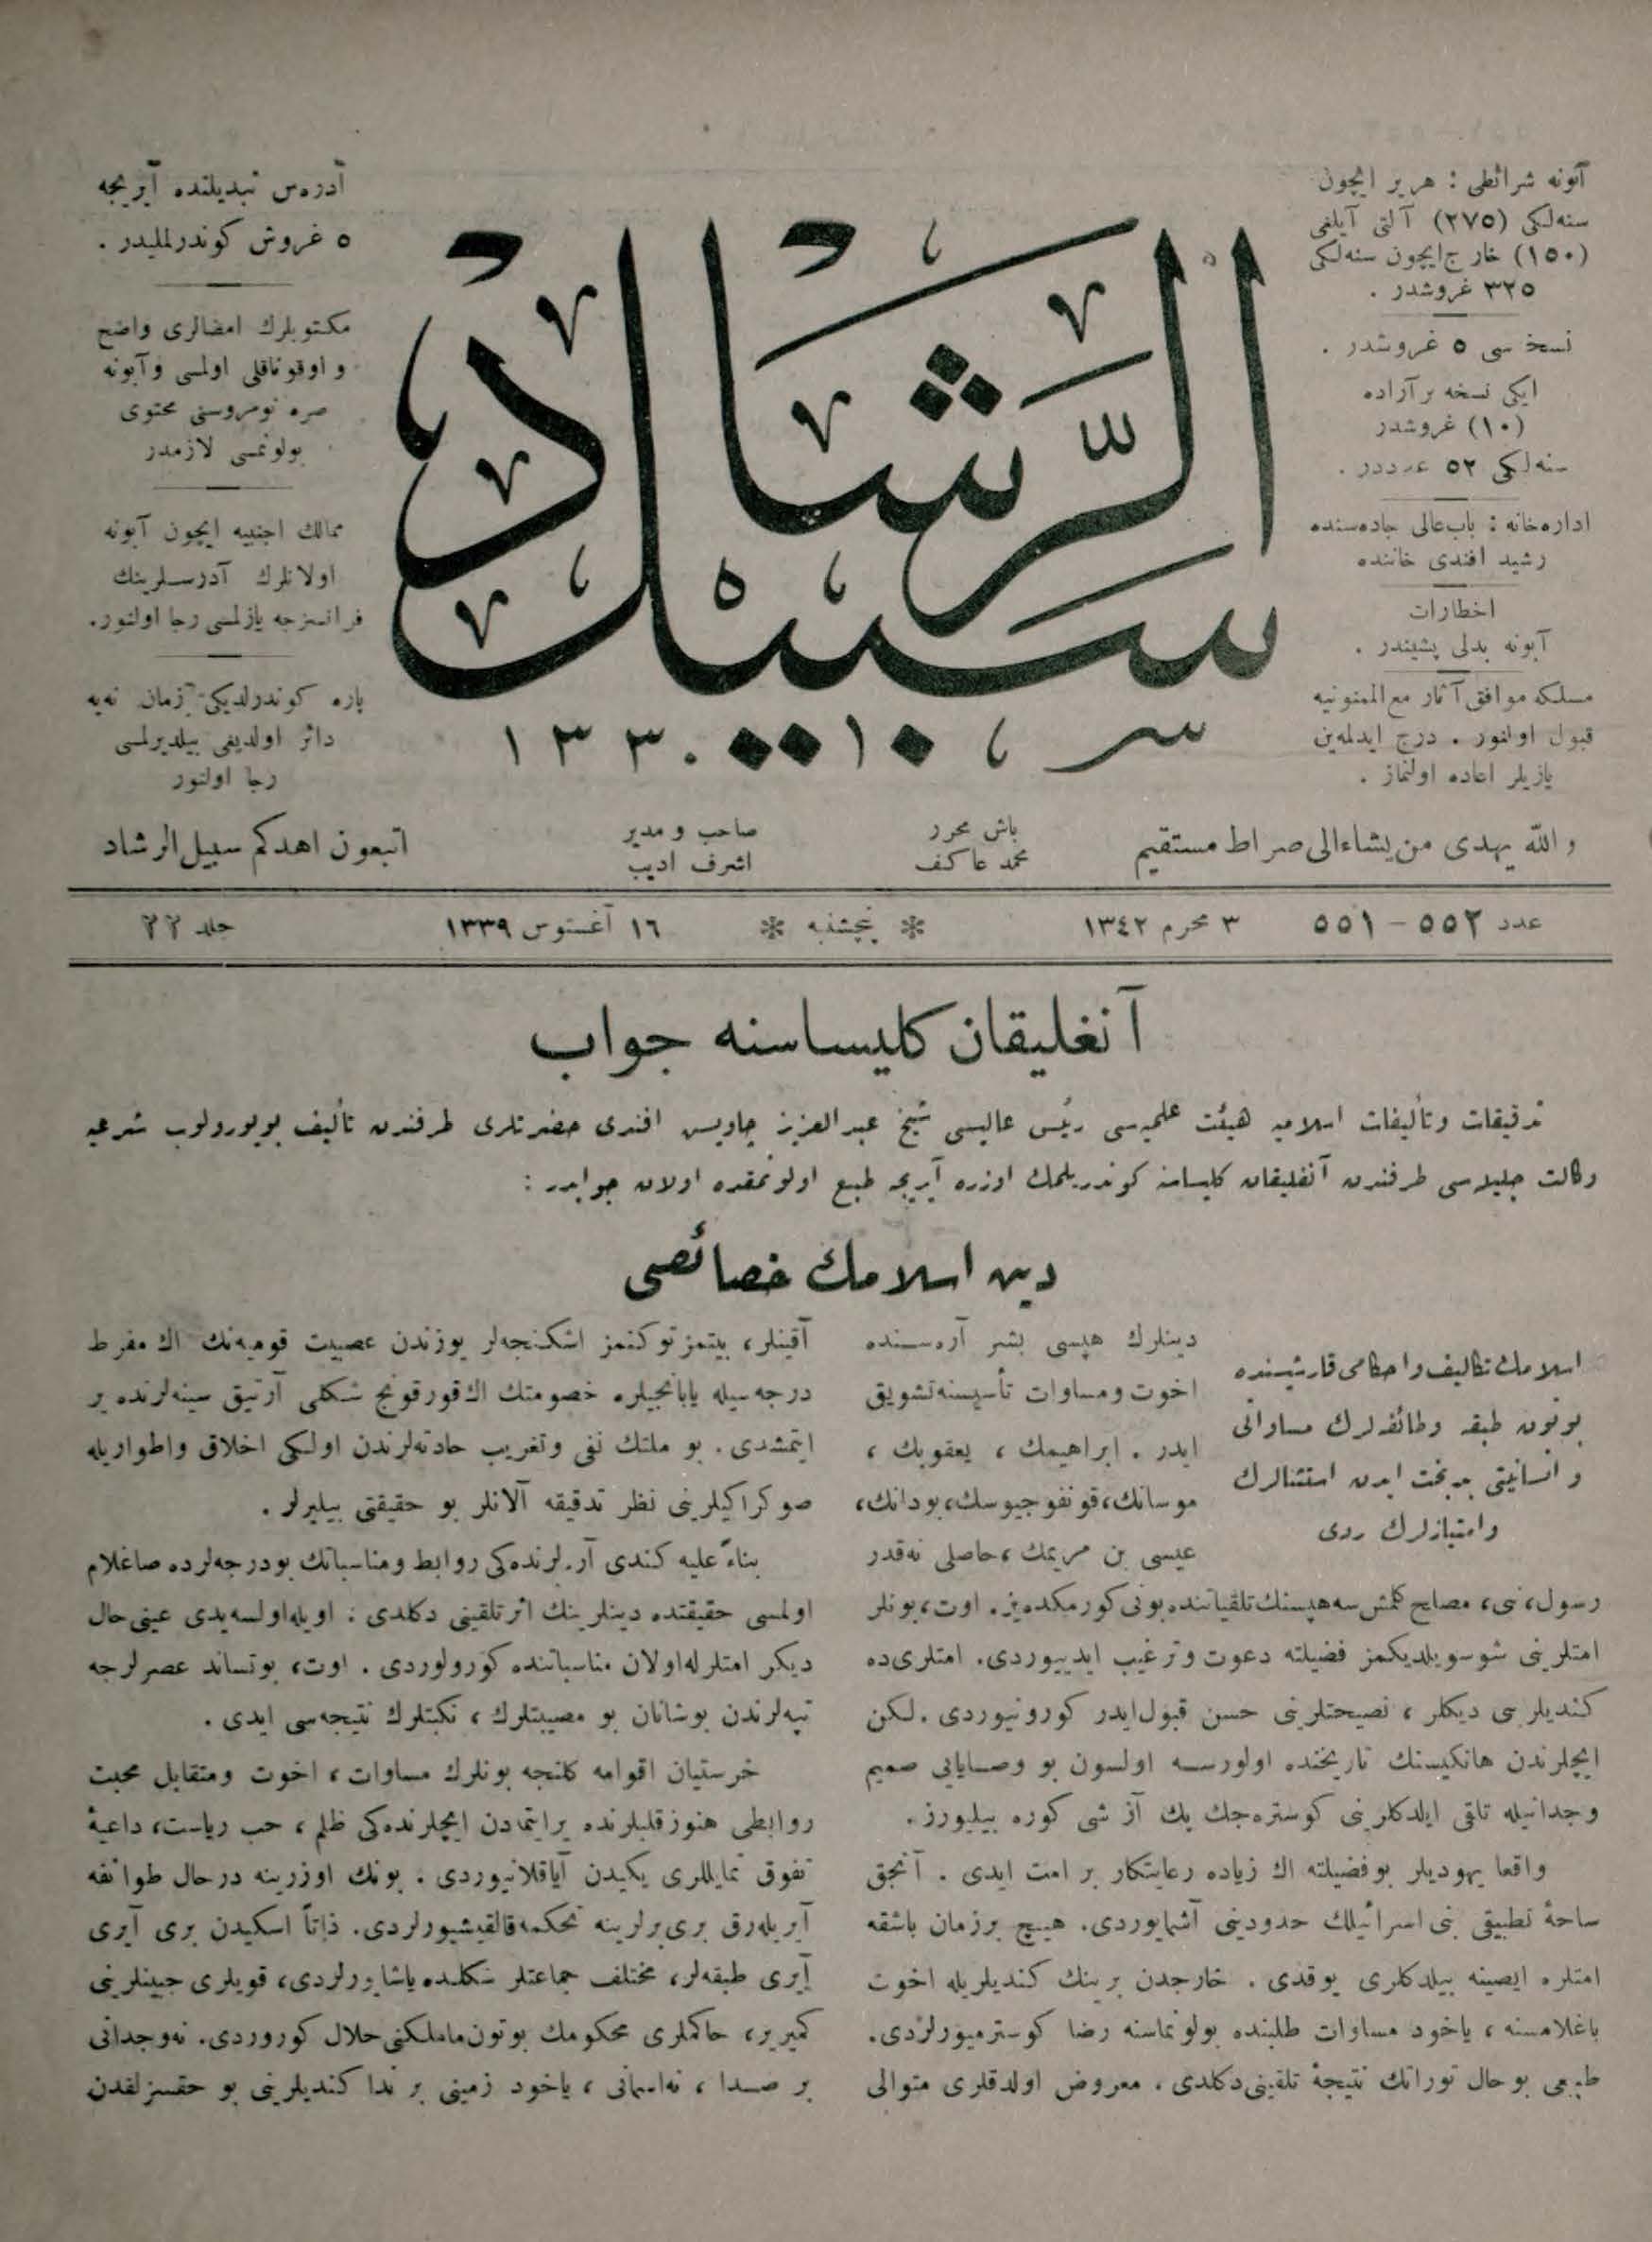 آبونه شرائطی : هر یر ایچون
سنه‌لکی (۲۷۵) آلتی آیلغی
(۱۵۰) خارج ایچون سنه‌لکی
۳۲۵ غروشدر .
نسخه سی ۵ غروشدر .
ایکی نسخه بر آراده
(۱۰) غروشدر
سنه‌لکی ۵۲ عدددر .
اداره‌خانه : باب‌عالی جاده‌سنده
رشید افندی خاننده
اخطارات
آبونه بدلی پشیندر .
مسلکه موافق آثار مع‌الممنونیه
قبول اولنور . درج ایدلمه‌ین
یازیلر اعاده اولنماز .
سبيل الرّشاد
۱۳۳۰
آدره‌س تبدیلنده آیریجه
۵ غروش کوندرلملیدر .
مکتوبلرك امضالری واضح
و اوقوناقلی اولمسی و آبونه
صره نومروسنی محتوی
بولونمسی لازمدر
ممالك اجنبیه ایچون آبونه
اولانلرك آدرسلرینك
فرانسزجه یازلمسی رجا اولنور.
پاره کوندرلدیکی زمان نه‌یه
دائر اولدیغی بیلدیرلمسی
رجا اولنور
والله یهدی من یشاء الی صراط مستقیم
باش محرر
محمد عاکف
صاحب و مدیر
اشرف ادیب
اتبعون اهدکم سبیل‌الرشاد
عدد ۵۵۲ - ۵۵۱
۳ محرم ۱۳٤۲
❊ پنجشنبه ❊
۱٦ آغستوس ۱۳۳۹
جلد ۲۲
آنغلیقان کلیساسنه جواب
تدقیقات وتألیفات اسلامیه هیئت علمیه‌سی رئیس عالیسی شیخ عبدالعزیز چاویش افندی حضرتلری طرفندن تألیف بویورولوب شرعیه
وکالت جلیله‌سی طرفندن آنغلیقان کلیساسنه کوندریلمك اوزره آیریجه طبع اولونمقده اولان جوابدر :
دین اسلامك خصائصی
اسلامك تکالیف و احکامی قارشیسنده
بوتون طبقه وطائفه‌لرك مساواتی
و انسانیتی بدبخت ایدن استثنالرك
وامتیازلرك ردی
دینلرك هپسی بشر آره‌سنده
اخوت و مساوات تأسیسنه تشویق
ایدر . ابراهیمك ، یعقوبك ،
موسانك، قونفوجیوسك، بودانك،
عیسی بن مریمك ، حاصلی نه‌قدر
رسول، نبی، مصلح کلمش سه هپسنك تلقیاتنده بونی کورمکده‌یز. اوت، بونلر
امتلرینی شو سویلدیکمز فضیلته دعوت و ترغیب ایدییوردی. امتلری‌ده
کندیلرینی دیکلر ، نصیحتلرینی حسن قبول ایدر کورونیوردی . لکن
ایچلرندن هانکیسنك تاریخنده اولورسه اولسون بو وصایایی صمیم
وجدانیله تلقی ایلدکلرینی کوستره‌جك پك آز شی کوره بیلیورز .
واقعا یهودیلر بو فضیلته اك زیاده رعایتکار بر امت ایدی . آنجق
ساحهٔ تطبیقی بنی اسرائیلك حدودینی آشمایوردی. هیچ بر زمان باشقه
امتلره ایصینه بیلدکلری یوقدی . خارجدن برینك کندیلریله اخوت
باغلامسنه ، یاخود مساوات طلبنده بولونماسنه رضا کوسترمیورلردی.
طبیعی بو حال توراتك نتیجهٔ تلقینی دکلدی . معروض اولدقلری متوالی
آقینلر، بیتمز توکنمز اشکنجه‌لر یوزندن عصبیت قومیه‌نك اك مفرط
درجه سیله یابانجیلره خصومتك اك قورقونج شکلی آرتیق سینه‌لرنده یر
ایتمشدی. بو ملتك نفی وتغریب حادثه‌لرندن اولکی اخلاق واطواریله
صوکراکیلرینی نظر تدقیقه آلانلر بو حقیقتی بیلیرلر .
بناءً علیه کندی آره‌لرنده‌کی روابط و مناسباتك بودرجه‌لرده صاغلام
اولمسی حقیقتده دینلرینك اثر تلقینی دکلدی : اویله اولسه‌یدی عینی حال
دیکر امتلرله اولان مناسباتنده کورولوردی . اوت، بو تساند عصرلرجه
تپه‌لرندن بوشانان بو مصیبتلرك ، نکبتلرك نتیجه‌سی ایدی .
خرستیان اقوامه کلنجه بونلرك مساوات ، اخوت ومتقابل محبت
روابطی هنوز قلبلرنده یر ایتمادن ایچلرنده‌کی ظلم ، حب ریاست، داعیهٔ
تفوق تمایللری یکیدن آیاقلانیوردی . بونك اوزرینه درحال طوائفه
آیریله‌رق بری برلرینه تحکمه قالقیشیورلردی. ذاتاً اسکیدن بری آیری
آیری طبقه‌لر، مختلف جماعتلر شکلنده یاشایورلردی، قویلری جبینلرینی
کمیریر، حاکملری محکومك بوتون ماملکنی حلال کوروردی. نه وجدانی
بر صدا ، نه اسمانی ، یاخود زمینی بر ندا کندیلرینی بو حقسزلقدن